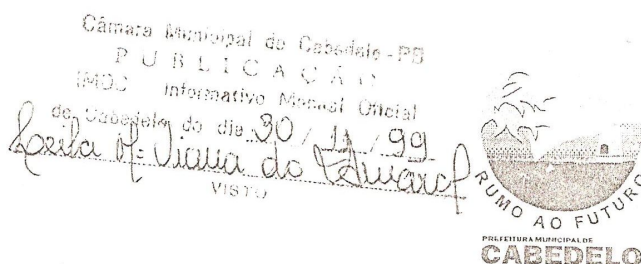 Câmara Municipal de Cabedelo - PB
PUBLICAÇÃO
IMOC Informativo Mensal Oficial
de Cabedelo do dia 30 / 11 / 99
Viana do Amaral
VISTO
RUMO AO FUTURO
PREFEITURA MUNICIPAL DE
CABEDELO